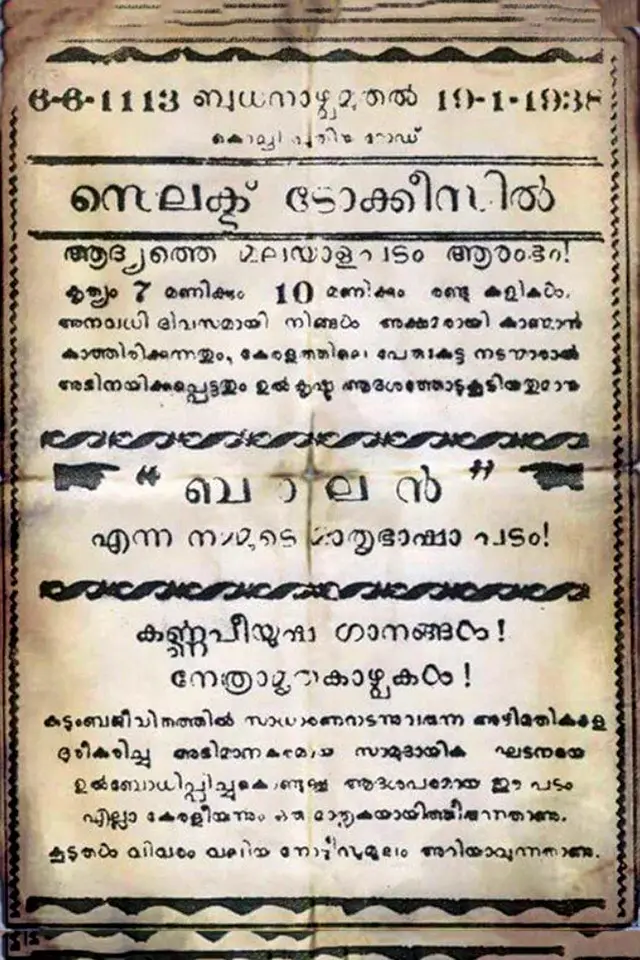 6-6-1113 ബുധനാഴ്ചമുതൽ 19-1-1938
കൊച്ചി പുതിയ റോഡ്
സെലക്ട് ടോക്കീസിൽ
ആദ്യത്തെ മലയാളപടം ആരംഭം!
കൃത്യം 7 മണിക്കും 10 മണിക്കും രണ്ടു കളികൾ.
അനവധി ദിവസമായി നിങ്ങൾ അക്ഷമരായി കാണ്മാൻ
കാത്തിരിക്കുന്നതും, കേരളത്തിലെ പേരുകേട്ട നടന്മാരാൽ
അഭിനയിക്കപ്പെട്ടതും ഉൽകൃഷ്ട ആദശത്തോടുകൂടിയതുമായ
“ബാലൻ”
എന്ന നമ്മുടെ മാതൃഭാഷാ പടം!
കണ്ണപീയൂഷ ഗാനങ്ങൾ!
നേത്രാമൃതകാഴ്ചകൾ!
കുടുംബജീവിതത്തിൽ സാധാരണനടന്നുവരുന്ന അഴിമതികളെ
ദൂരീകരിച്ചു അഭിമാനകരമായ സാമുദായിക ഘടനയെ
ഉൽബോധിപ്പിച്ചുകൊണ്ടുള്ള ആദശപരമായ ഈ പടം
എല്ലാ കേരളീയന്നും ഒരു മാതൃകയായിത്തീരുന്നതാണു.
കൂടുതൽ വിവരം വലിയ നോട്ടീസുമൂലം അറിയാവുന്നതാണു.